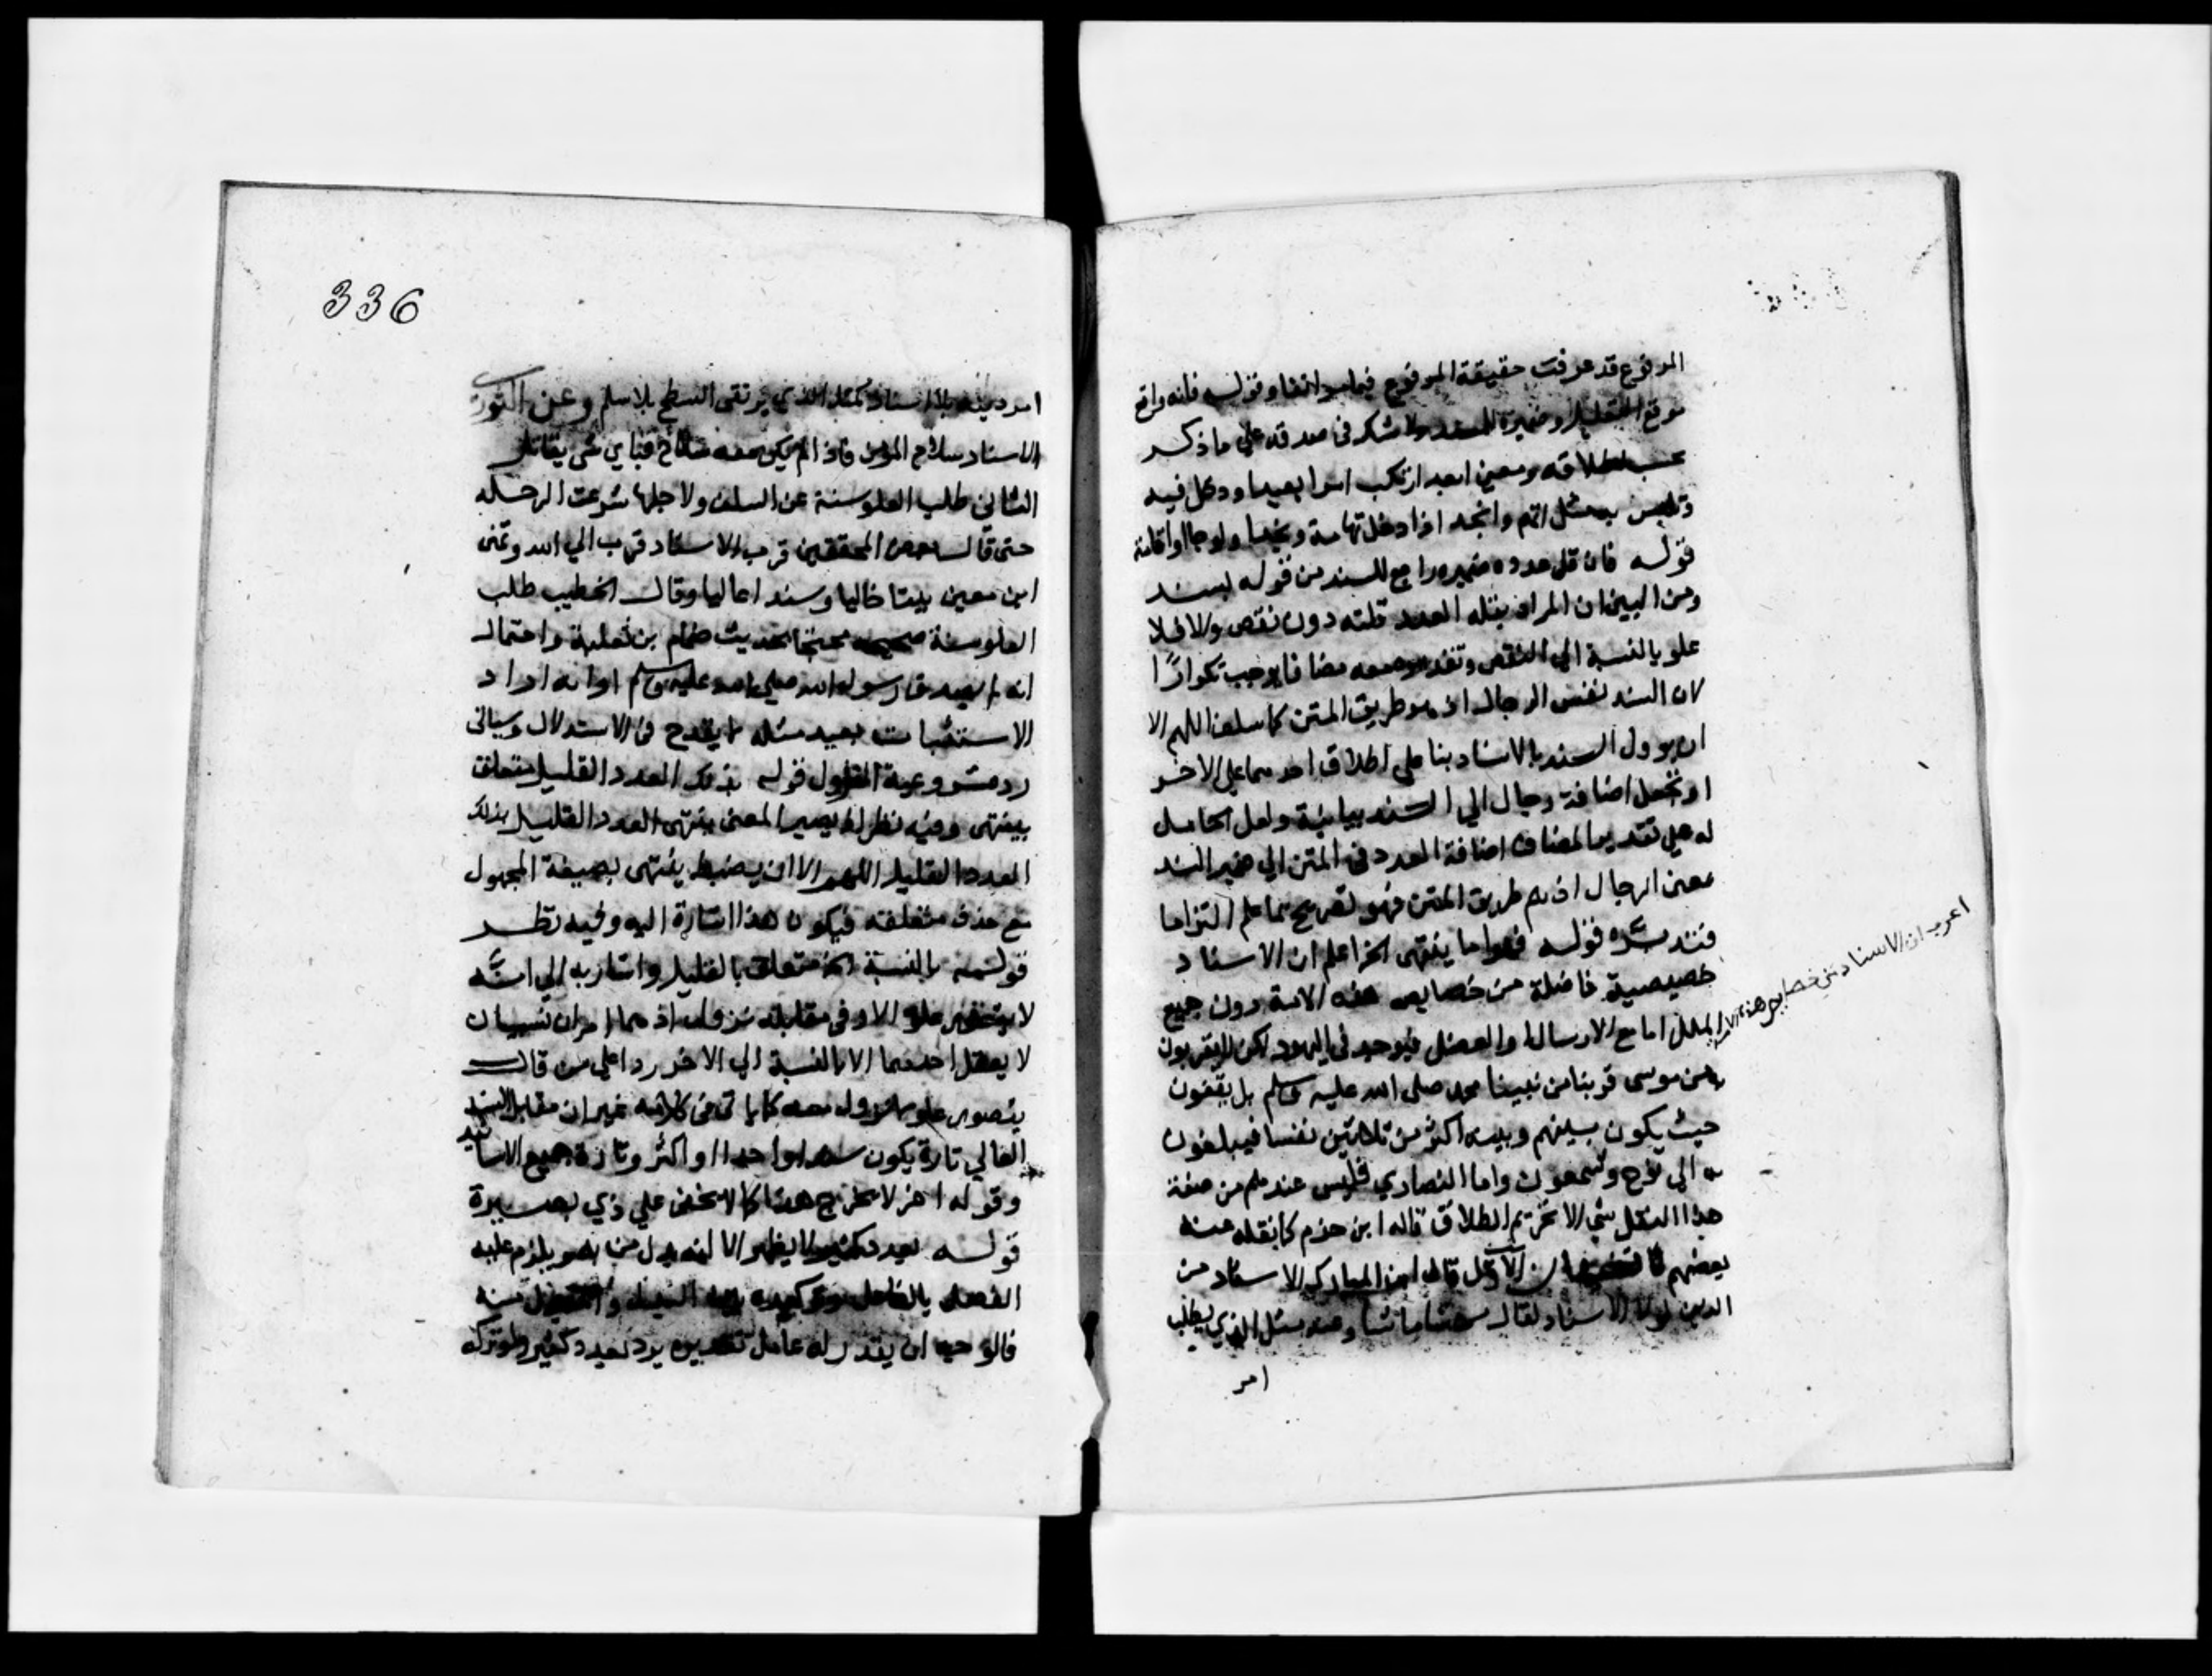 الموفوع قد عرفت حقيقة المرفوع فيما مر انفا وقوله فانه واقع
موقع التعليل وضميره للسند ولا شك في صدقه على ما ذكر
حسب اطلاقه ومعنى ابعد ارتكب امرا بعيدا ودخل فيه
وتلبس به مثل اتهم وانجد اذا دخل تهامة ونجدا ولوجا او اقامة
قوله فان قل عدده ضميره راجع للسند من قوله لسند
ومن البين ان المراد بقلة العدد قلته دون نقص والا فلا
علو بالنسبة الى النقص وتقديره معه مضافا يوجب تكرارا
لان السند نفس الرجال اذ هو طريق المتن كما سلف اللهم الا
ان يوول السند بالاسناد بنا على اطلاق احدهما على الاخر
او تجعل اضافة رجال الي السند بيانية ولعل الحامل
له على تقدير المضاف اضافة العدد في المتن الي ضمير السند
معنى الرجال اذ هم طريق المتن فهو تصريح بما علم التزاما
فتدبره قوله فهو اما ينتهى الخ اعلم ان الاسناد
خصيصة فاضلة من خصايص هذه الامة دون جميع
الملل اما مع الارسال والعضل فيوجد في اليهود لكن لا يقربون
به من موسى قربنا من نبينا محمد صلى الله عليه وسلم بل يقفون
حيث يكون بينهم وبينه اكثر من ثلاثين نفسا فيبلغون
به الى نوح وشمعون واما النصاري فليس عندهم من صفة
هذا النقل شي الا تحريم الطلاق قاله ابن حزم كما نقله عنه
بعضهم قال ابن المبارك الاسناد من
الدين لولا الاسناد لقال من شا ما شا وعنه مثل الذي يطلب
امر
اعرب ان الاسناد من خصايص هذه الامة
336
امر دينه بلا اسناد كمثل الذي يرتقى السطح بلا سلم وعن الثوري
الاسناد سلاح المؤمن فاذا لم يكن معه سلاح فباي شي يقاتل
الثاني طلب العلو سنة عن السلف ولاجلها شرعت الرحلة
حتى قال بعض المحققين قرب الاسناد قرب الي الله وتمنى
ابن معين بيتا خاليا وسندا عاليا وقال الخطيب طلب
العلو سنة صحيحه محتجا بحديث ضمام بن ثعلبة واحتمال
انه رسول الله صلى الله عليه وسلم او انه اراد
الاستثبات بعيد مثله لا يقدح في الاستدلال وسياتي
رد مشروعية النزول قوله بذلك العدد القليل متعلق
بينتهى وفيه نظر اذ يصير المعنى ينتهى العدد القليل بذلك
العدد القليل اللهم الا ان يضبط ينتهى بصيغة المجهول
مع حذف متعلقه فيكون هذا اشارة اليه وفيه نظر
قوله بالنسبة الخ متعلق بالقليل واشار به الي انه
لا يتحقق علو الا وفي مقابلته نزول اذ هما امران نسبيان
لا يعقل احدهما الا بالنسبة الى الاخر ردا على من قال
يتصور علو بلا نزول معه كما ياتى في كلامه غير ان مقابل السند
العالي تارة يكون سندا واحدا او اكثر وتارة جميع الاسانيد
وقوله اخر لا يخرج هذا كما لا يخفى علي ذي بصيرة
قوله بعدد كثير لا يظهر الا انه بدل من به ويلزم عليه
الفصل بالفاعل وتوكيده بين البدل والمبدل منه
فالوجه ان يقدر له عامل تقديره يرد بعدد كثير ولو تركه